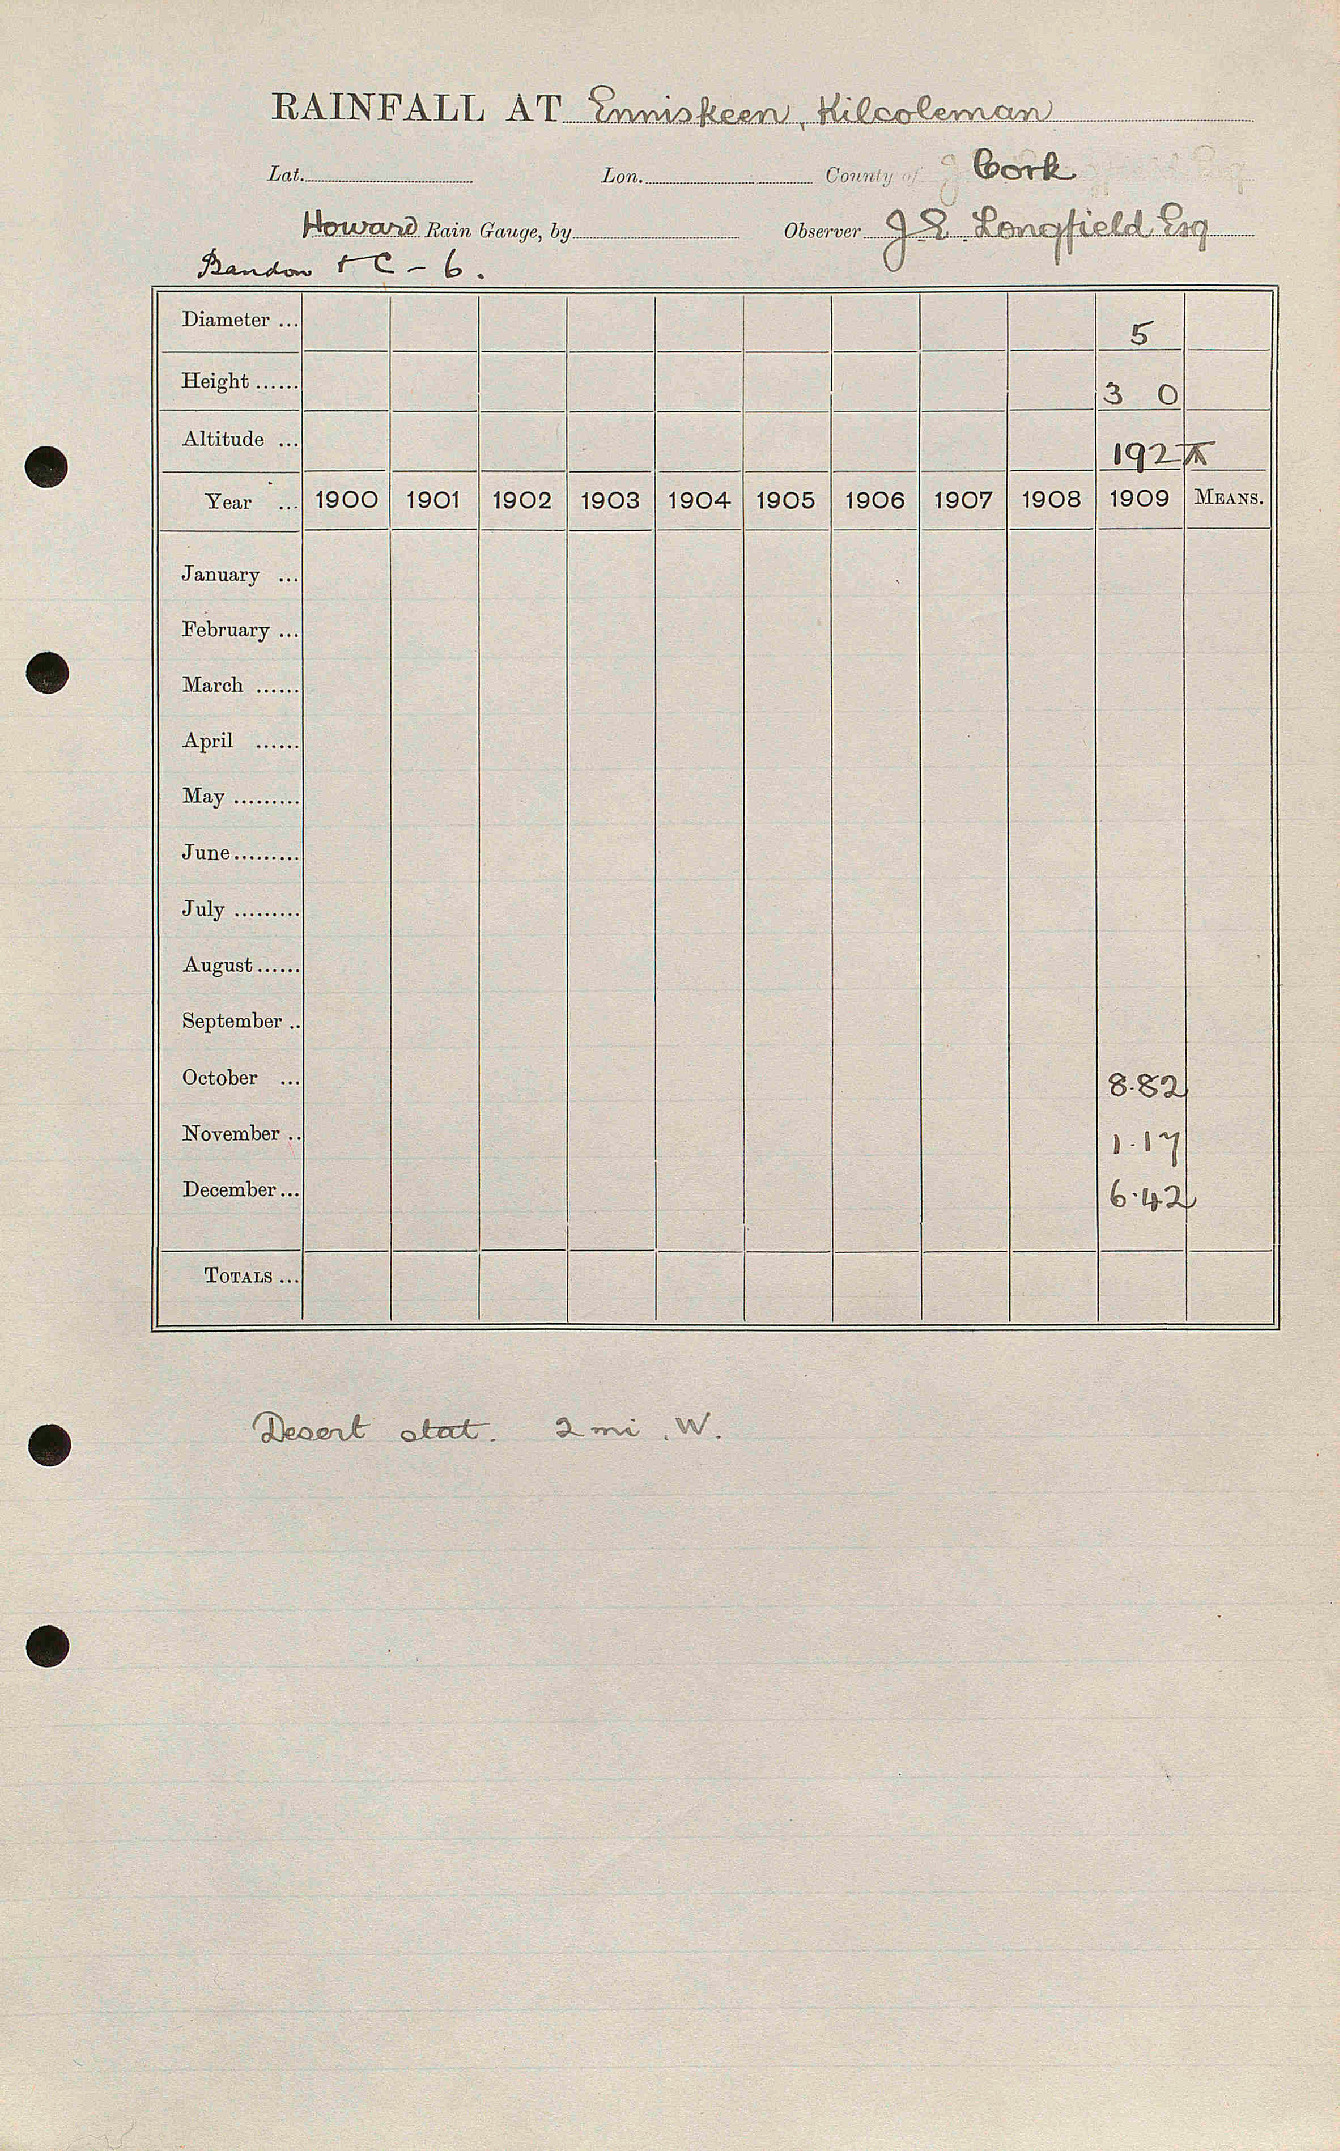 RAINFALL AT Enniskeen, Kilcoleman
Lat. Lon. County of Cork
Howard Rain Gauge, by Observer J E Longfield Esq
Bandon + C - 6.
Diameter ... 5
Height ...... 3 0
Altitude ... 192
Year ... 1900 1901 1902 1903 1904 1905 1906 1907 1908 1909 MEANS.
January ...
February ...
March ......
April ......
May .........
June .........
July .........
August ......
September ..
October ... 8.82
November .. 1.17
December ... 6.42
TOTALS ...
Desert stat. 2 mi. W.